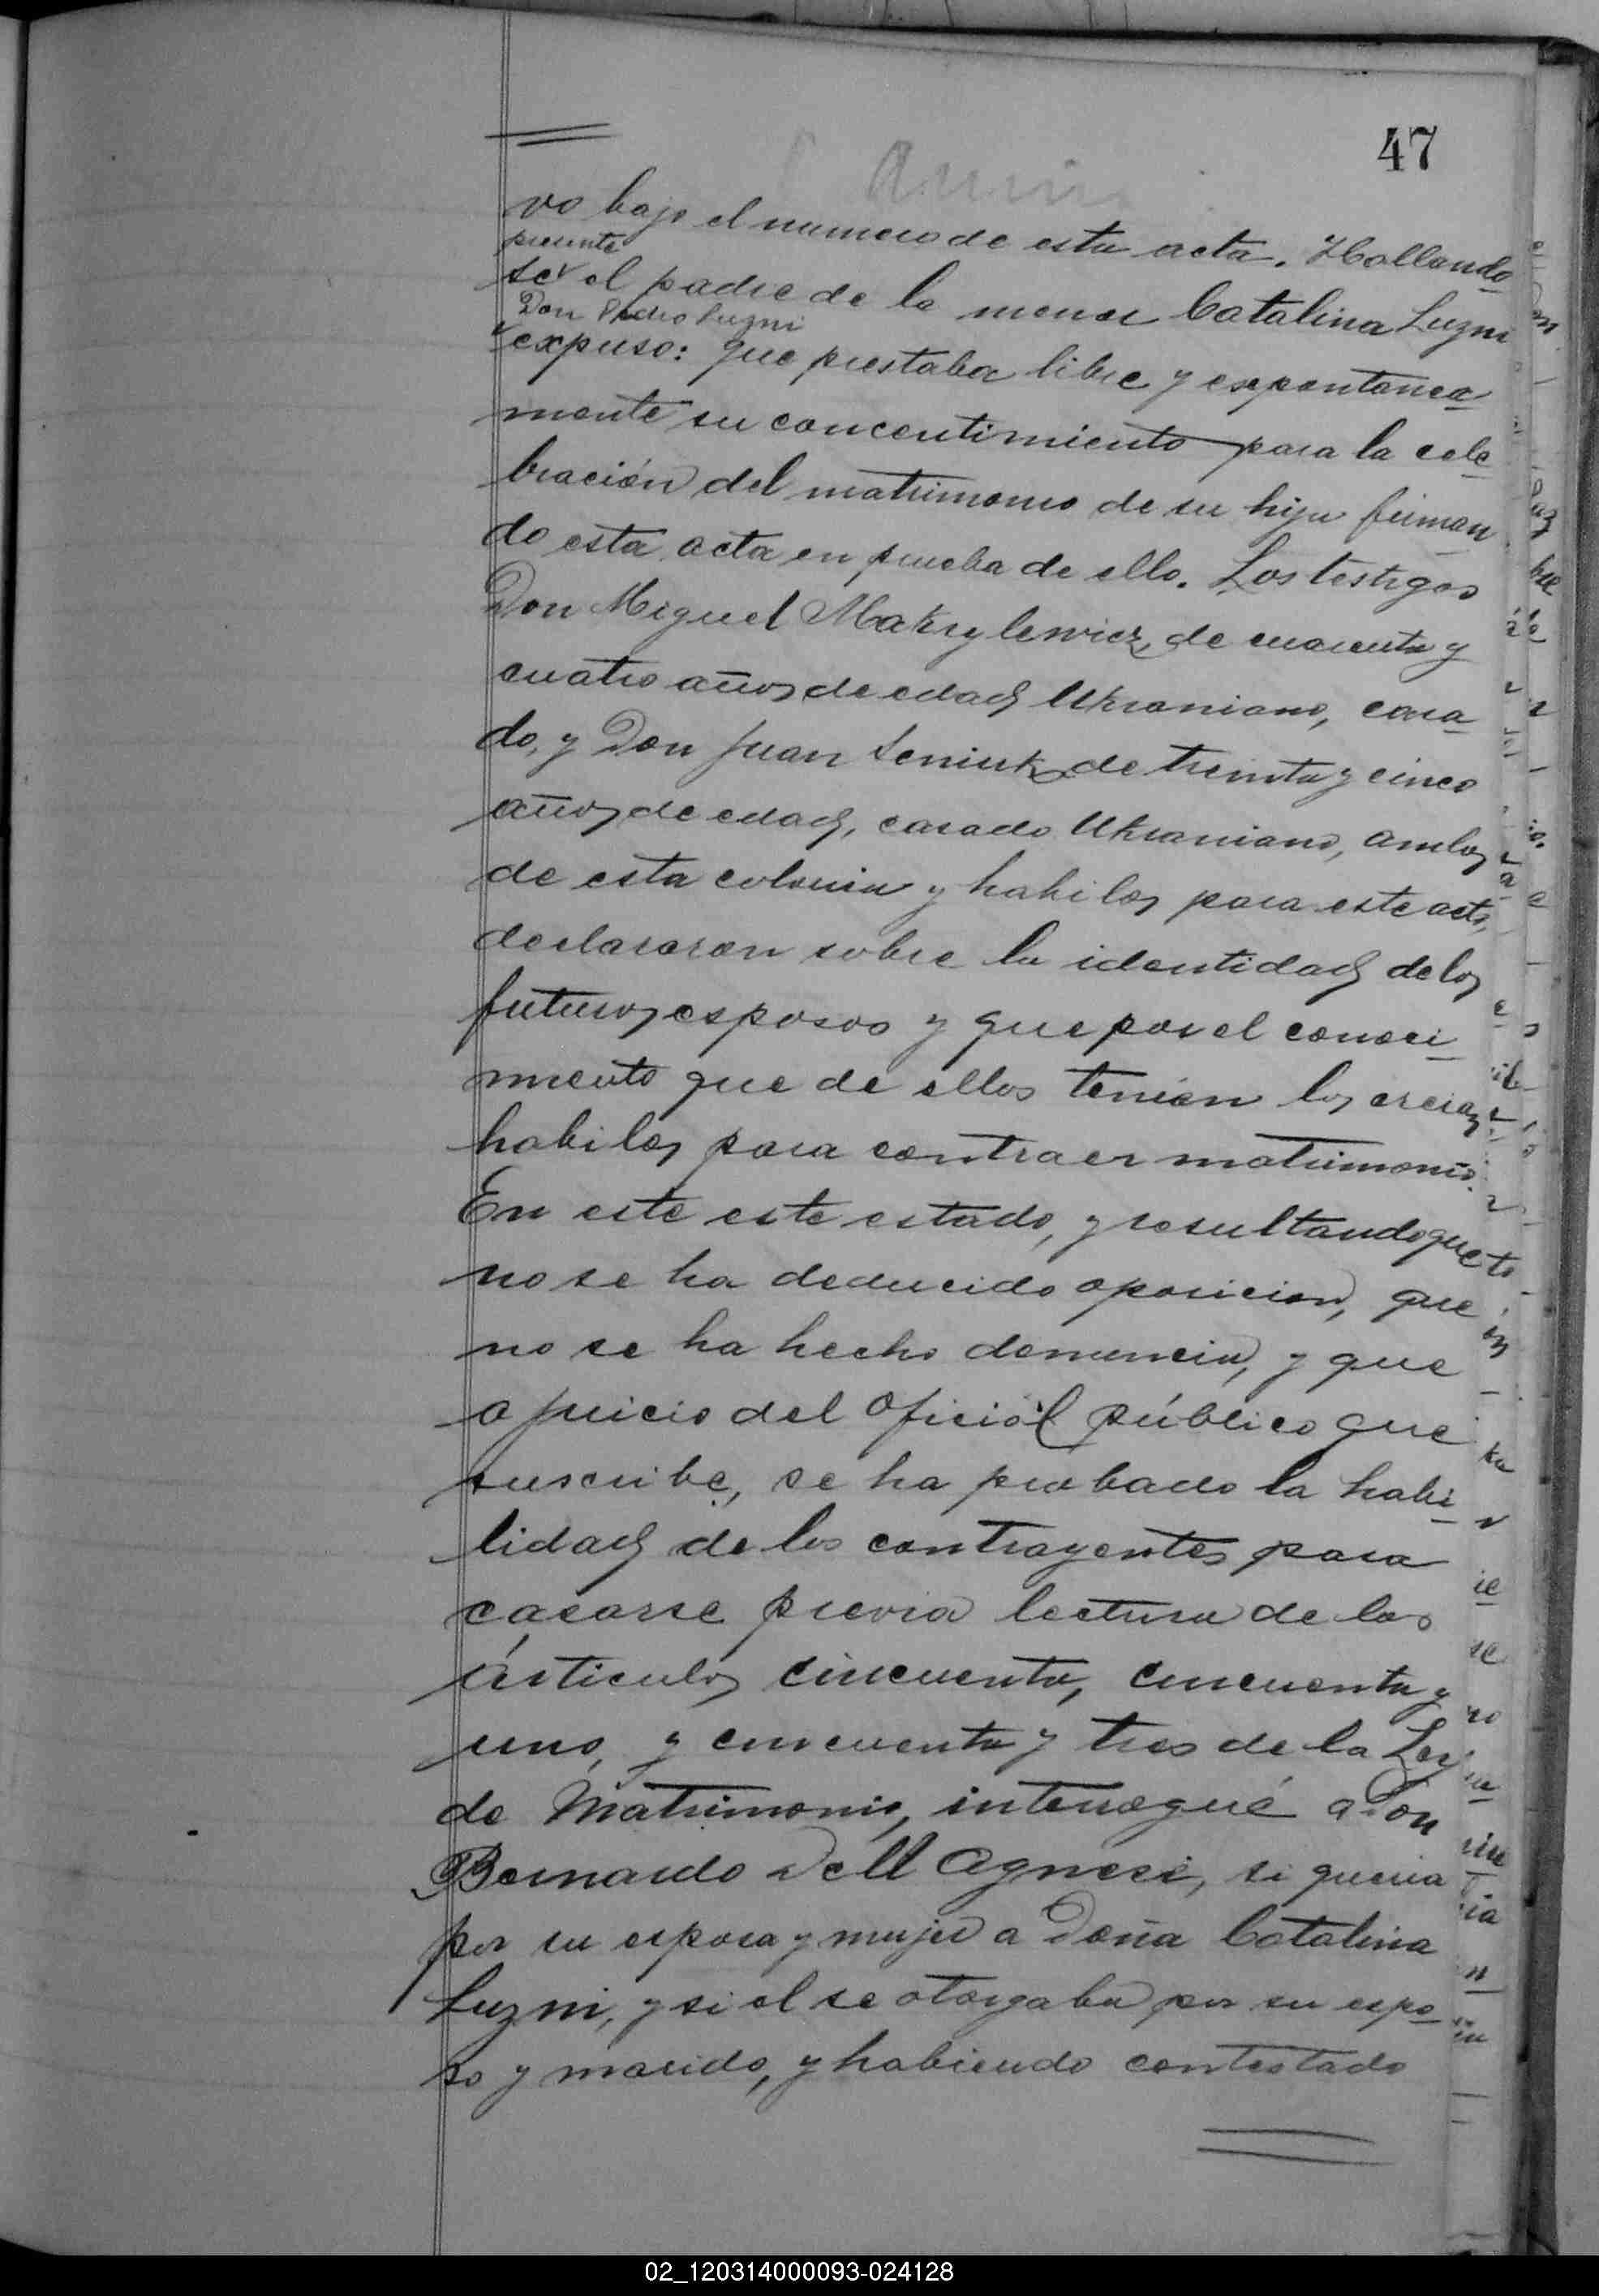 47
vo bajo el numero de esta acta. Hallando
presente
se el padre de la menor Catalina Luzni
Don Pedro Luzni
expuso: que prestaba libre y expontanea
mente su concentimiento para la cele
bración del matrimonio de su hija firman
do esta acta en prueba de ello. Los testigos
Don Miguel Makrylewicz, de cuarenta y
cuatro años de edad Ukraniano, casa
do, y Don Juan Seniuk de treinta y cinco
años de edad, casado Ukraniano, ambos
de esta colonia y habiles para este acto,
declararon sobre la identidad de los
futuros esposos y que por el conoci
miento que de ellos tenian los creian
habiles para contraer matrimonio.
En este este estado, y resultando que
no se ha deducido oposicion, que
no se ha hecho denuncia, y que
a juicio del Oficial público que
suscribe, se ha probado la habi
lidad de los contrayentes para
casarse previa lectura de los
árticulos cincuenta, cincuenta y
uno, y cincuenta y tres de la Ley
de Matrimonio, interrogué a Don
Bernardo Dell Agnese, si queria
por su esposa y mujer a Doña Catalina
Luzni, y si el se otorgaba por su espo
so y marido, y habiendo contestado
02_120314000093-024128